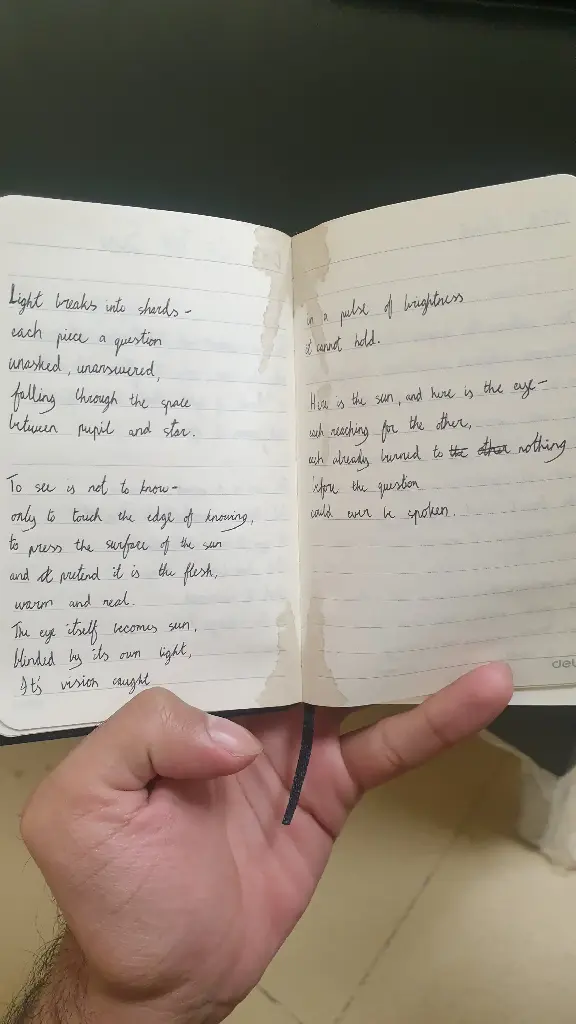 Light breaks into shards -
each piece a question
unasked, unanswered,
falling through the space
between pupil and star.
To see is not to know -
only to touch the edge of knowing,
to press the surface of the sun
and pretend it is the flesh,
warm and real.
The eye itself becomes sun,
blinded by its own light,
It's vision caught
in a pulse of brightness
it cannot hold.
Here is the sun, and here is the eye -
each reaching for the other,
each already burned to the other nothing
before the question
could ever be spoken.